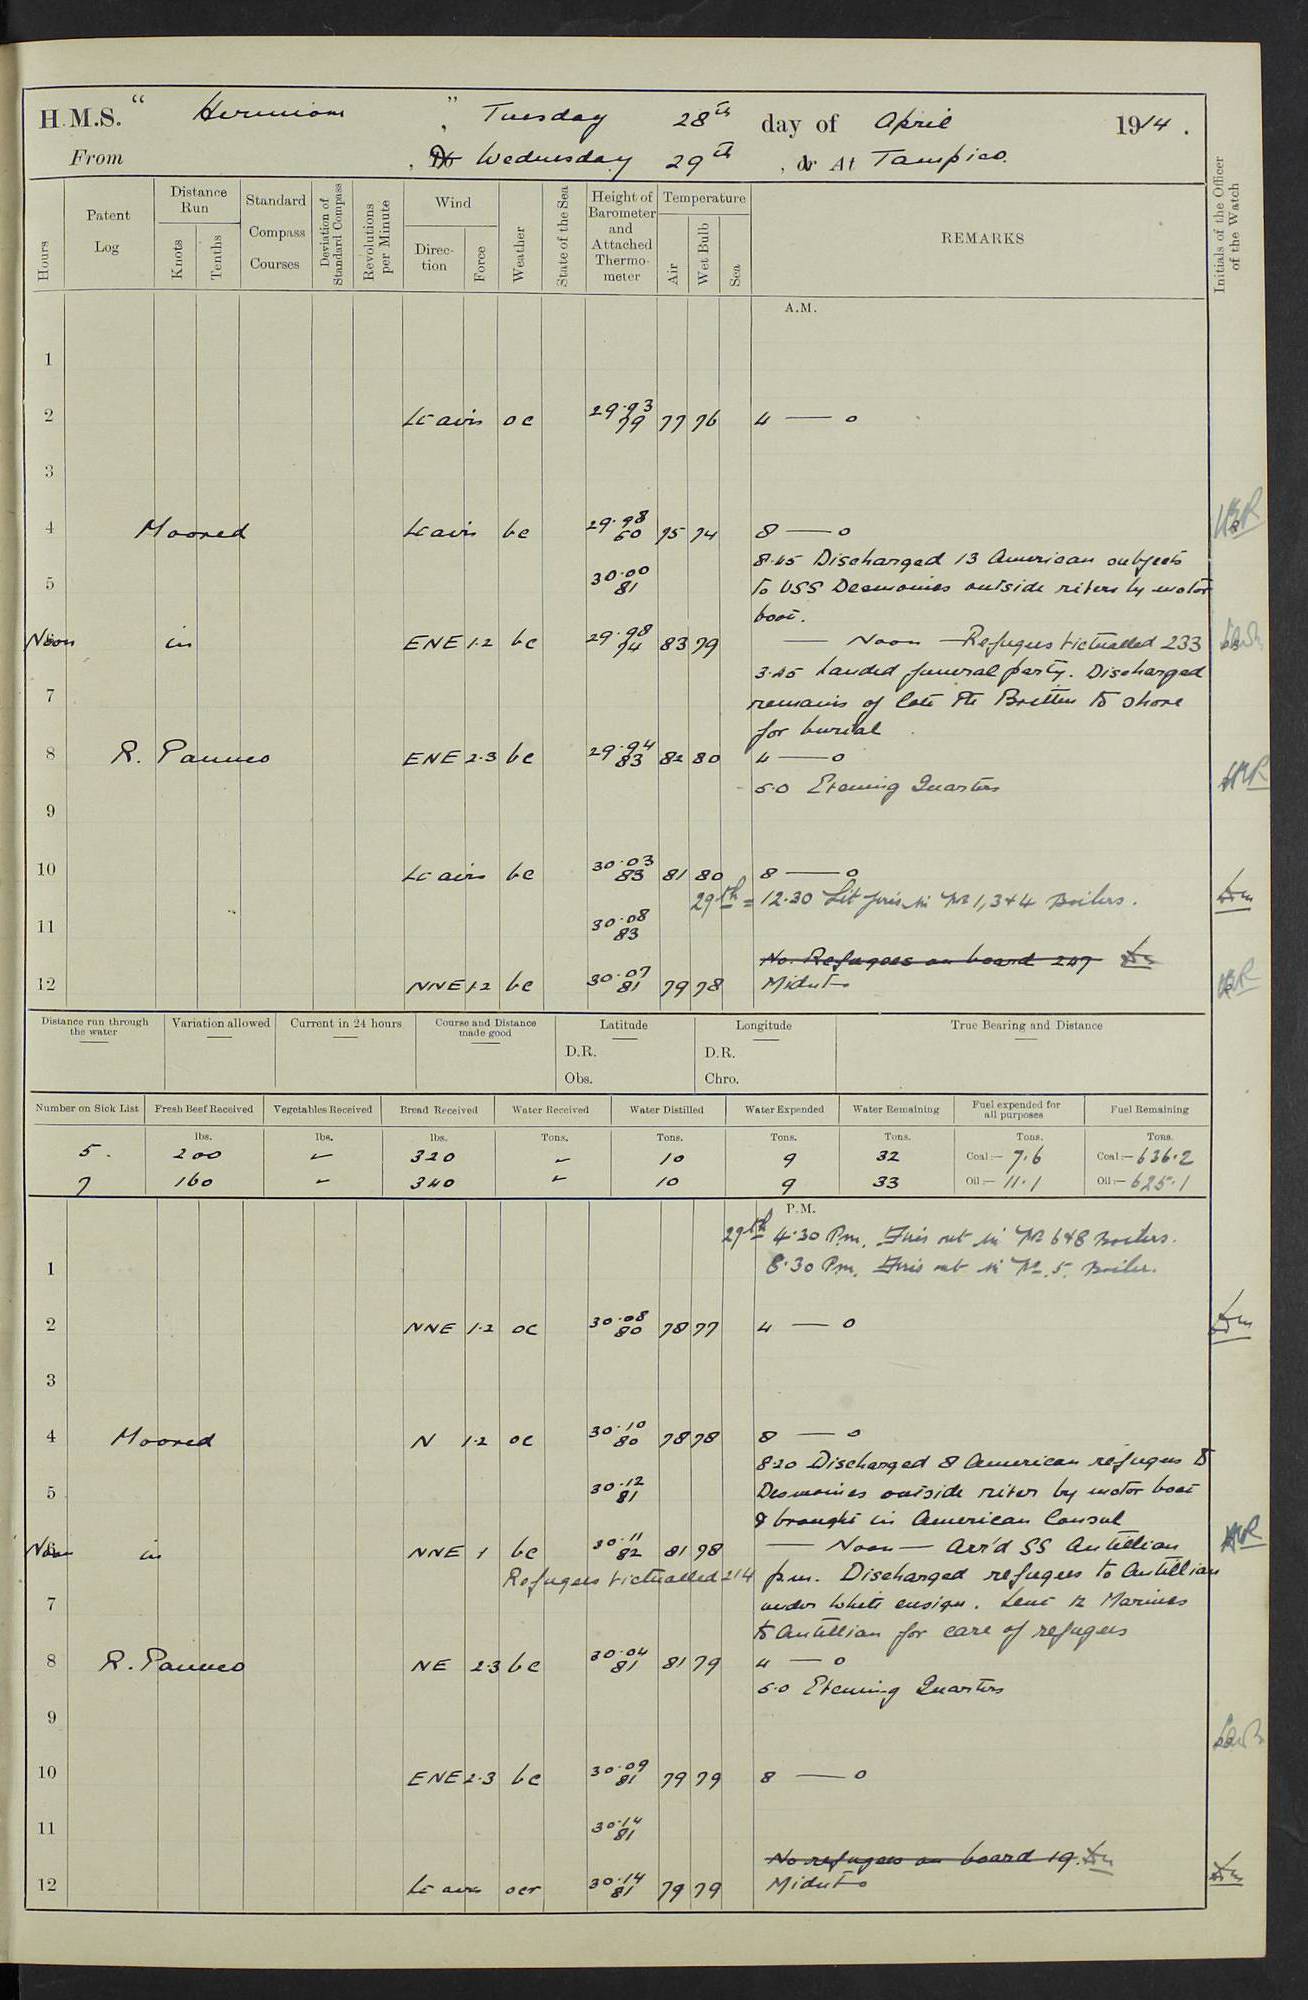 H.M.S. " Hermione ", Tuesday 28th day of April 1914.
From , To Wednesday 29th , or At Tampico.
Hours
Patent Log
Distance Run
Knots
Tenths
Standard Compass Courses
Deviation of Standard Compass
Revolutions per Minute
Wind
Direction
Force
Weather
State of the Sea
Height of Barometer and Attached Thermometer
Temperature
Air
Wet Bulb
Sea
REMARKS
Initials of the Officer of the Watch
A.M.
1
2 Lt airs oc 29.93 79 77 76 4 — 0
3
4 Moored Lt airs bc 29.98 60 75 74 8 — 0
8.45 Discharged 13 American subjects
5 30.00 81 to USS Desmoines outside river by motor
boat.
Noon in ENE 1.2 bc 29.98 74 83 79 — Noon — Refugees victualled 233
3.45 Landed funeral party. Discharged
7 remains of late Pte Britten to shore
for burial
8 R. Panuco ENE 2.3 bc 29.94 83 82 80 4 — 0
5.0 Evening Quarters
9
10 Lt airs bc 30.03 83 81 80 8 — 0
29th = 12.30 Lit fires in No 1, 3 & 4 Boilers.
11 30.08 83
No. Refugees on board 247
12 NNE 1.2 bc 30.07 81 79 78 Midnt
Distance run through the water
Variation allowed
Current in 24 hours
Course and Distance made good
Latitude
D.R.
Obs.
Longitude
D.R.
Chro.
True Bearing and Distance
Number on Sick List Fresh Beef Received Vegetables Received Bread Received Water Received Water Distilled Water Expended Water Remaining Fuel expended for all purposes Fuel Remaining
lbs. lbs. lbs. Tons. Tons. Tons. Tons. Tons. Tons.
5. 200 – 320 – 10 9 32 Coal:– 7.6 Coal:– 636.2
7 160 – 340 – 10 9 33 Oil:– 11.1 Oil:– 625.1
P.M.
29th 4.30 Pm. Fires out in No 6 & 8 Boilers.
1 8.30 Pm. Fires out in No. 5. Boiler.
2 NNE 1.2 oc 30.08 80 78 77 4 — 0
3
4 Moored N 1.2 oc 30.10 80 78 78 8 — 0
8.20 Discharged 8 American refugees to
5 30.12 81 Desmoines outside river by motor boat
& brought in American Consul
Noon in NNE 1 bc 30.11 82 81 78 — Noon — Arr'd SS Antillian
Refugees victualled 214 p.m. Discharged refugees to Antillian
7 under White ensign. Sent 12 Marines
to Antillian for care of refugees
8 R. Panuco NE 2.3 bc 30.04 81 81 79 4 — 0
5.0 Evening Quarters
9
10 ENE 2.3 bc 30.09 81 79 79 8 — 0
11 30.14 81
No refugees on board 19.
12 Lt airs ocr 30.14 81 79 79 Midnt